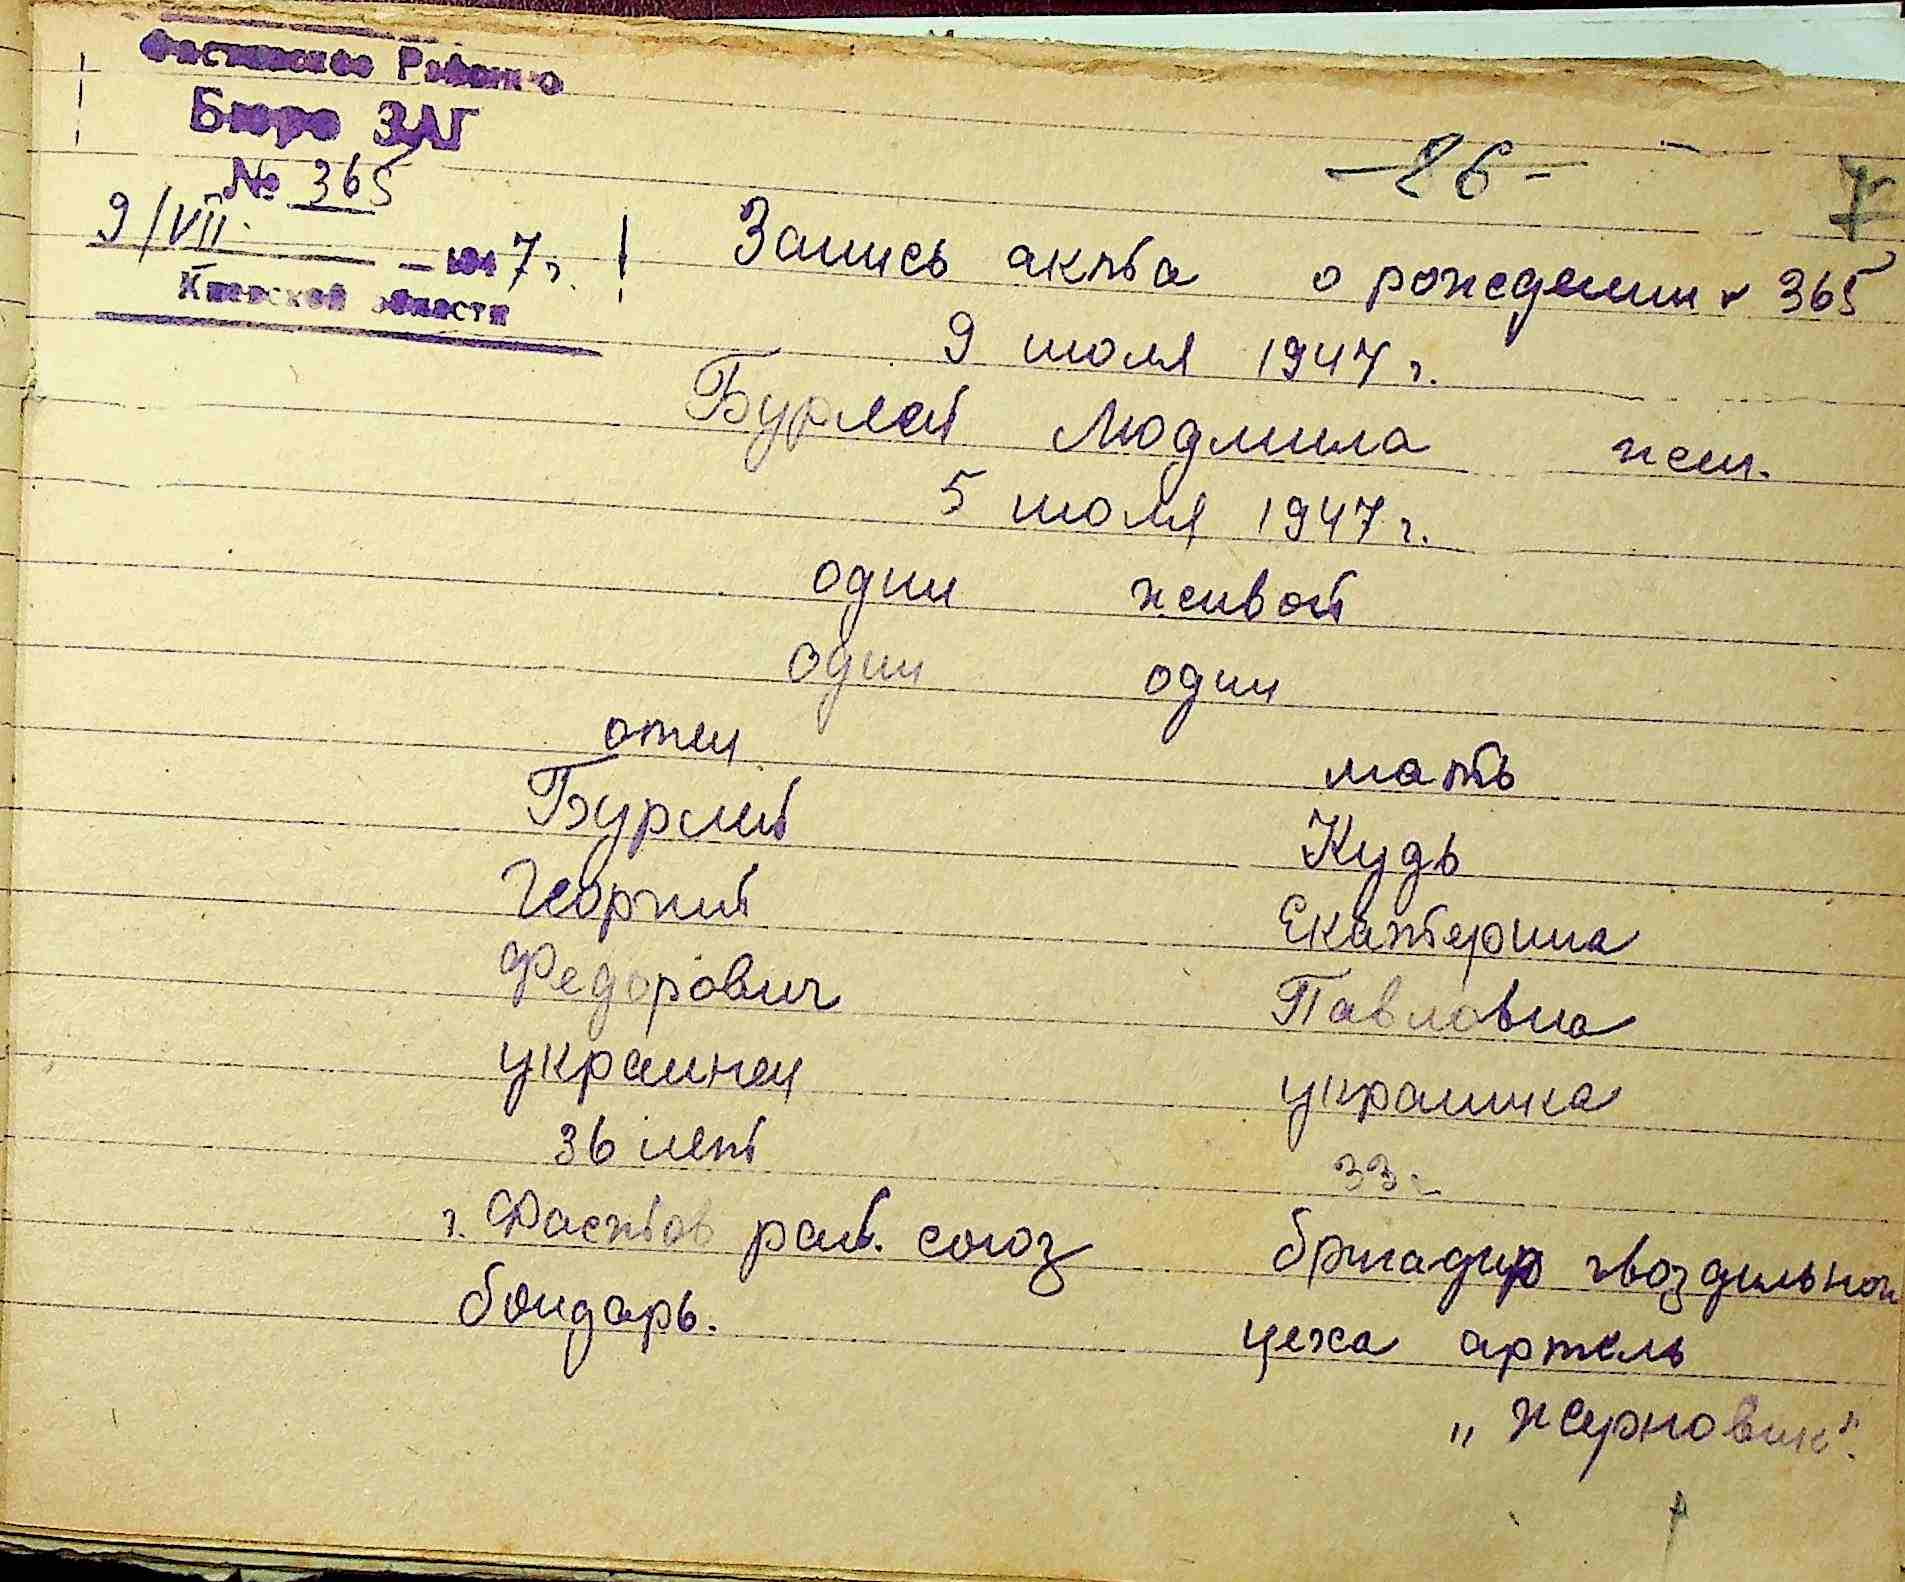 Фастовское Районно
Бюро ЗАГ
№ 365
9/VII 1947 г.
Киевской области
-26-
7
Запись акта о рождении № 365
9 июля 1947 г.
Бурлай Людмила жен.
5 июля 1947 г.
один живой
один один
отец мать
Бурлай Кудь
Георгий Екатерина
Федорович Павловна
украинец украинка
36 лет 33
г. Фастов раб. союз бригадир гвоздильной
бондарь. цеха артель
"Жерновик".